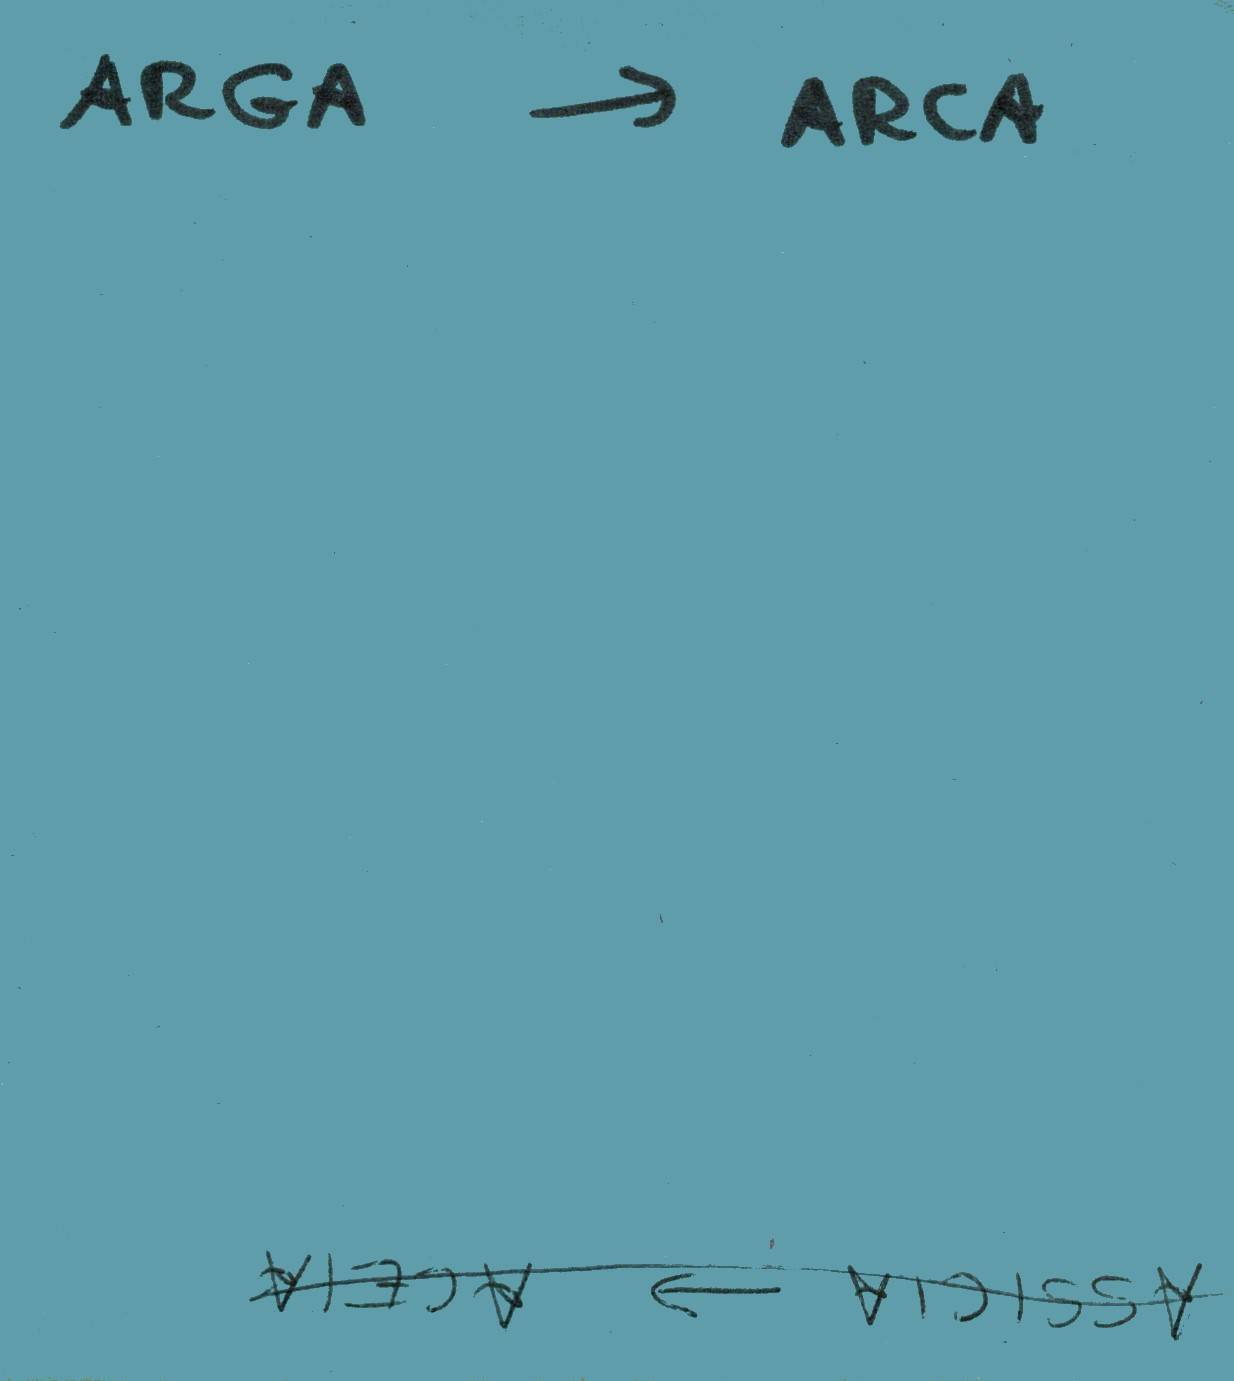 ARGA → ARCA
ASSICIA → ACEIA